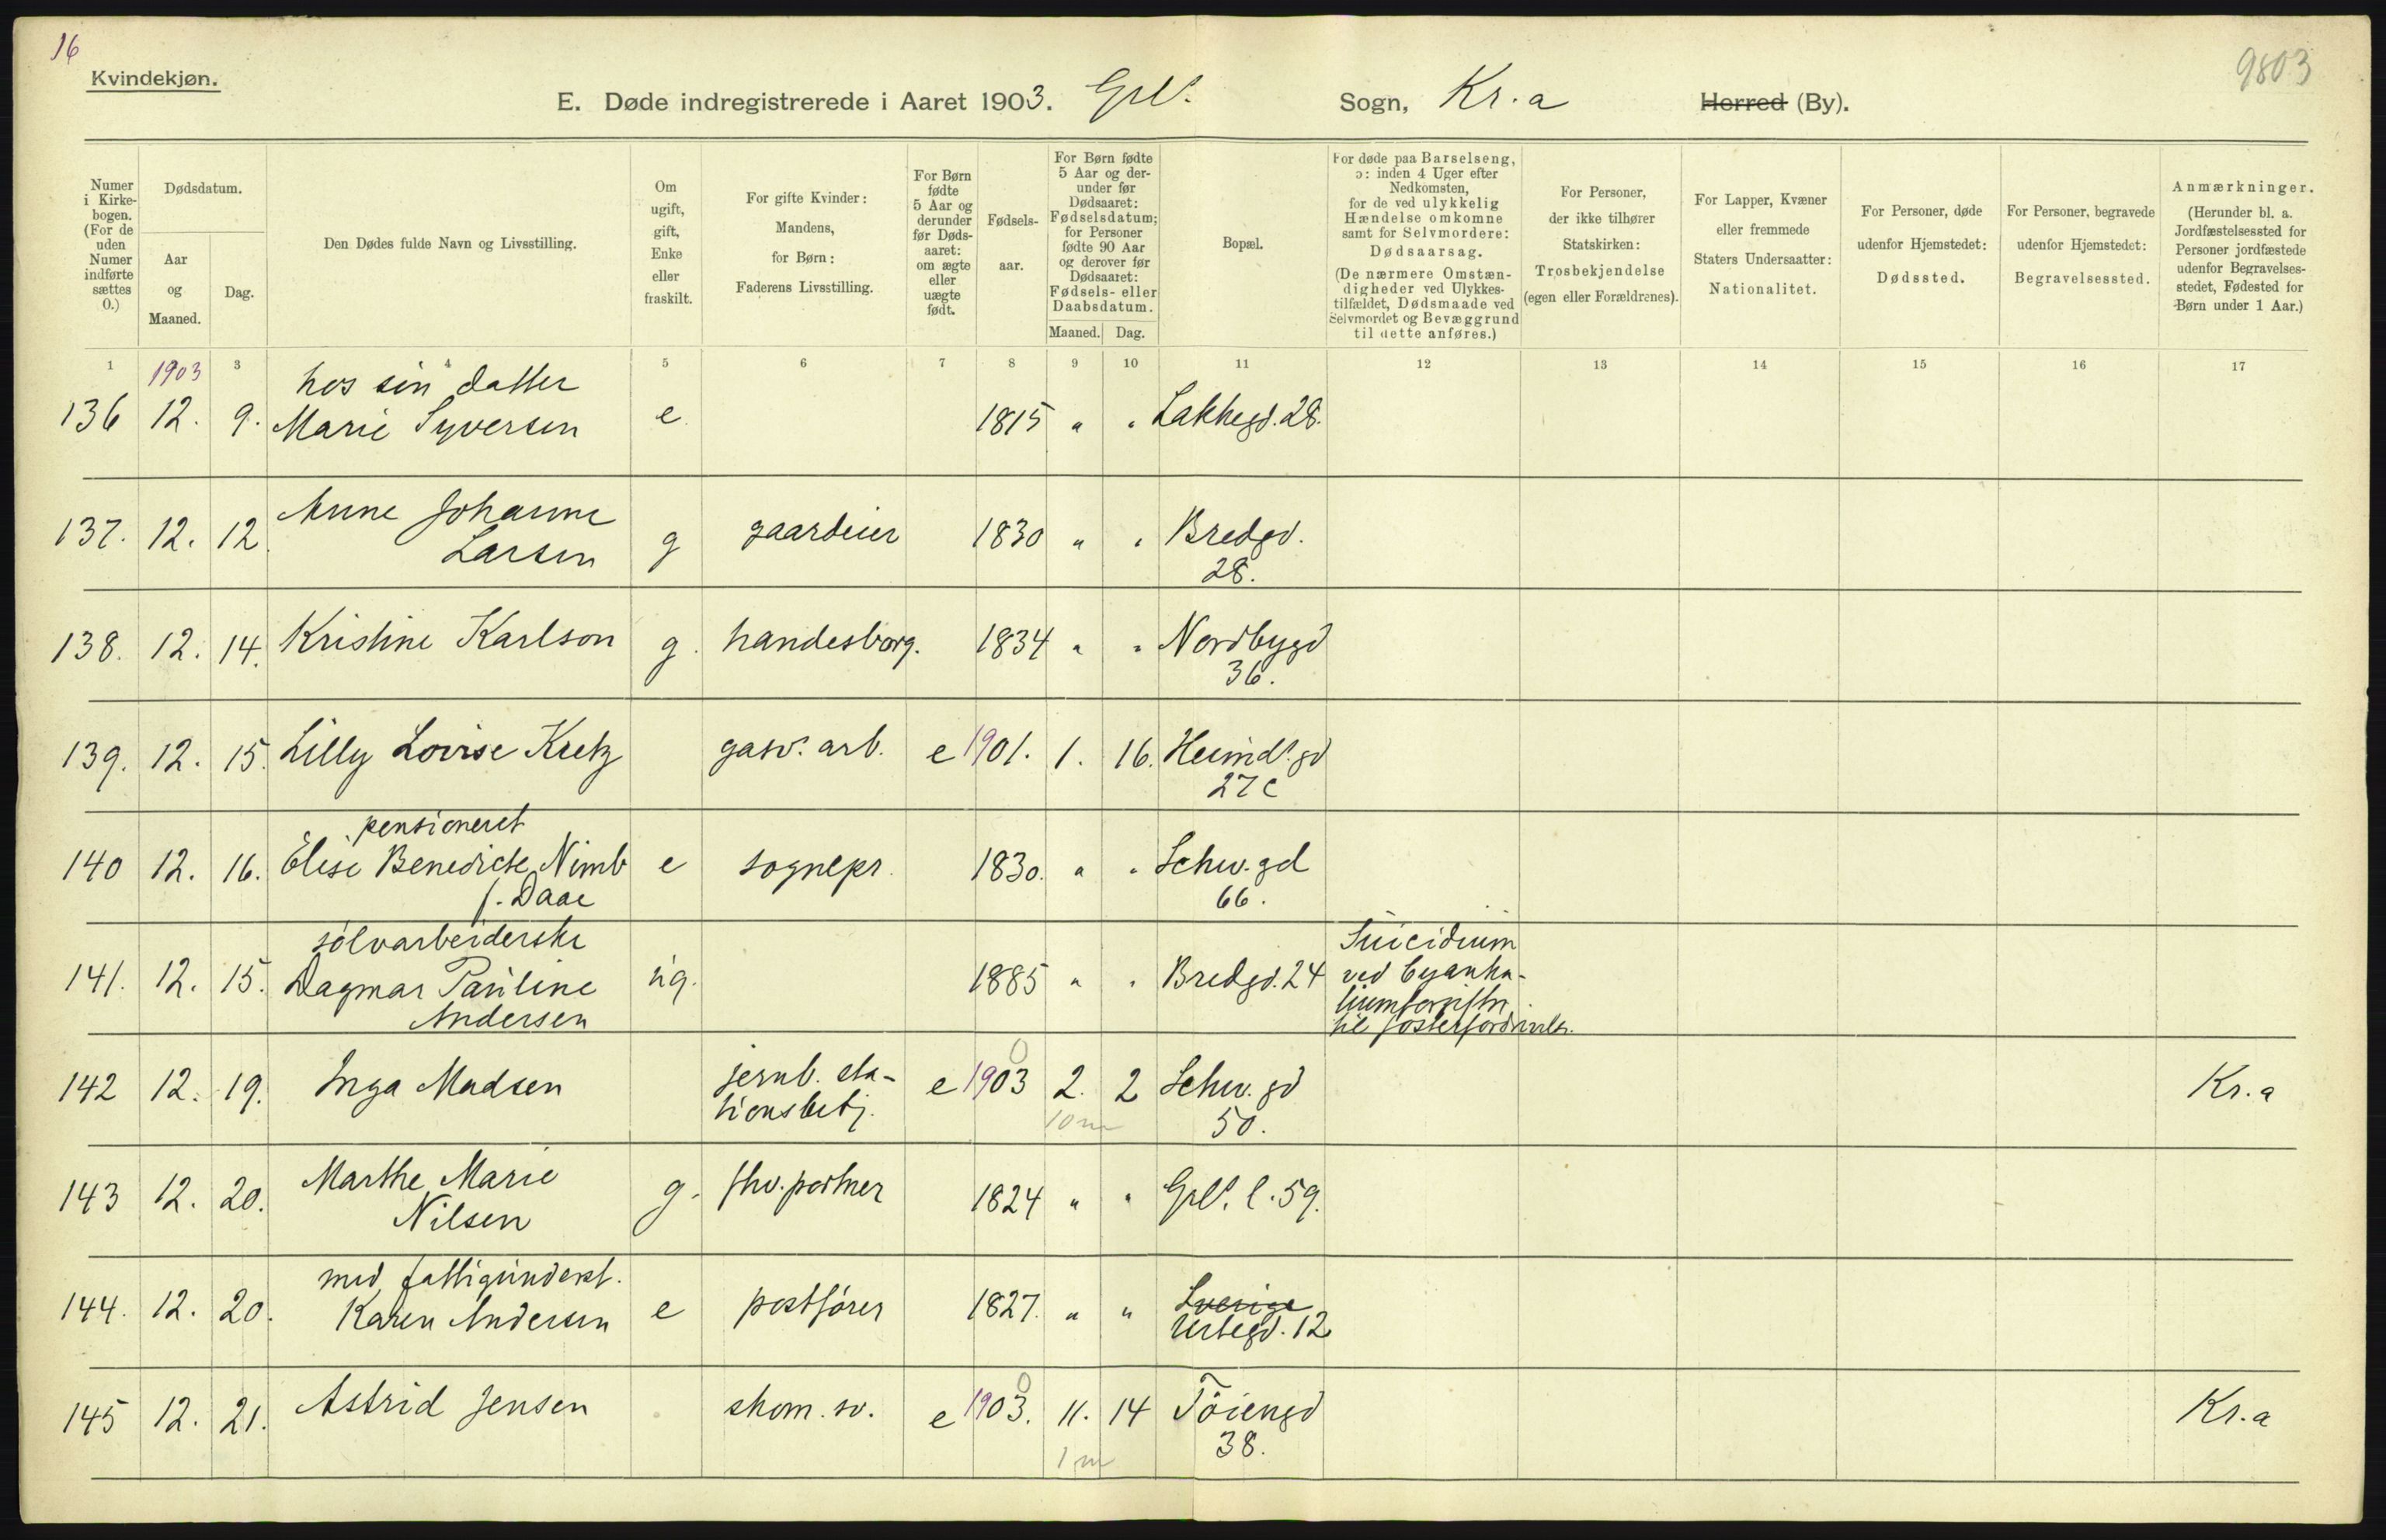 16
9803
Kvindekjøn.
E. Døde indregistrerede i Aaret 1903. Grl. Sogn, Kr.a Herred (By).
Numer i Kirkebogen. (For de uden Numer indførte sættes 0.)
Dødsdatum.
Aar og Maaned.
Dag.
Den Dødes fulde Navn og Livsstilling.
Om ugift, gift, Enke eller fraskilt.
For gifte Kvinder: Mandens, for Børn: Faderens Livsstilling.
For Børn fødte 5 Aar og derunder før Dødsaaret: om ægte eller uægte født.
Fødselsaar.
For Børn fødte 5 Aar og derunder før Dødsaaret: Fødselsdatum; for Personer fødte 90 Aar og derover før Dødsaaret: Fødsels- eller Daabsdatum.
Maaned. Dag.
Bopæl.
For døde paa Barselseng, ɔ: inden 4 Uger efter Nedkomsten, for de ved ulykkelig Hændelse omkomne samt for Selvmordere: Dødsaarsag. (De nærmere Omstændigheder ved Ulykkestilfældet, Dødsmaade ved Selvmordet og Bevæggrund til dette anføres.)
For Personer, der ikke tilhører Statskirken: Trosbekjendelse (egen eller Forældrenes).
For Lapper, Kvæner eller fremmede Staters Undersaatter: Nationalitet.
For Personer, døde udenfor Hjemstedet: Dødssted.
For Personer, begravede udenfor Hjemstedet: Begravelsessted.
Anmærkninger. (Herunder bl. a. Jordfæstelsessted for Personer jordfæstede udenfor Begravelsesstedet, Fødested for Børn under 1 Aar.)
1 3 4 5 6 7 8 9 10 11 12 13 14 15 16 17
1903
hos sin datter
136 12. 9. Marie Syversen e. 1815 " " Lakkegd. 28.
137. 12. 12. Anne Johanne Larsen g gaardeier 1830 " " Bredgd. 28.
138. 12. 14. Kristine Karlson g. handesborg. 1834 " " Nordbygd 36.
139. 12. 15. Lilly Lovise Kretz gasv. arb. e 1901. 1. 16. Heimd. gd 27 c
pensioneret
140 12. 16. Elise Benedicte Nimb f. Daae e sognepr. 1830. " " Schw. gd 66.
sølvarbeiderske
141. 12. 15. Dagmar Pauline Andersen ug. 1885 " " Bredgd. 24 Suicidium ved til fosterfordrivels.
142 12. 19. Inga Madsen jernb. stationsbetj. e 1903 0 2. 2 Schw. gd 50. Kr.a
10 m
143 12. 20. Marthe Marie Nilsen g. fhv. portner 1824 " " Grl. l. 59.
med fattigunderst.
144. 12. 20. Karen Andersen e postfører 1827. " " Sverige
Urtegd. 12
145 12. 21. Astrid Jensen skom. sv. e 1903. 0 11. 14 Tøiengd 38. Kr.a
1 m